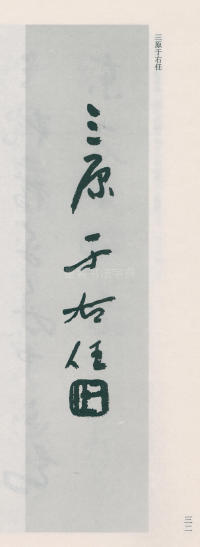 三原于右任
三原于右任
三二